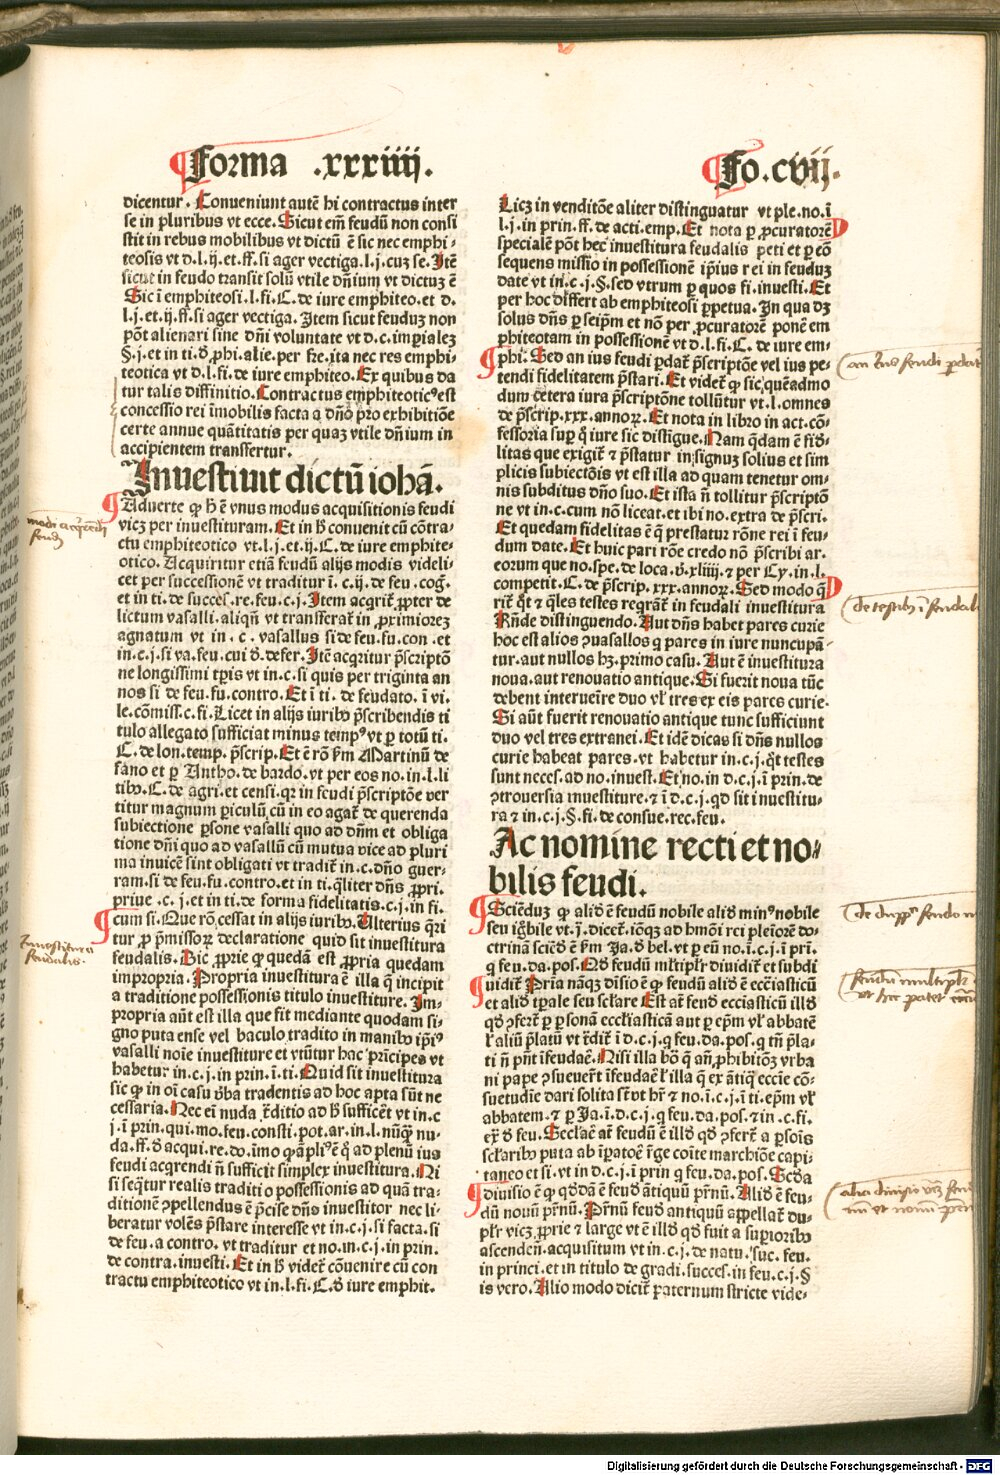 Forma .xxxiiij.
Fo.cvij.
dicentur. Conueniunt autẽ hi contractus inter
se in pluribus vt ecce. Sicut em̃ feudũ non consi
stit in rebus mobilibus vt dictũ ẽ sic nec emphi-
teosis vt d.l.ij.et.ff.si ager vectiga.l.j.cuꝫ se. Itẽ
sicut in feudo transit solũ vtile dñium vt dictuꝫ ẽ
Sic ĩ emphiteosi.l.fi.C.de iure emphiteo.et d.
l.j.et.ij.ff.si ager vectiga. Item sicut feuduꝫ non
põt alienari sine dñi voluntate vt d.c.imꝑialeꝫ
§.j.et in ti.d̾ ꝓhi.alie.per fre.ita nec res emphi-
teotica vt d.l.fi.de iure emphiteo. Ex quibus da
tur talis diffinitio. Contractus emphiteoticꝰ est
concessio rei ĩmobilis facta a dño pro exhibitiõe
certe annue quãtitatis per quaꝫ vtile dñium in
accipientem transfertur.
Inuestiuit dictũ iohã.
Aduerte ꝙ h̾ ẽ vnus modus acquisitionis feudi
vicꝫ per inuestituram. Et in h̾ conuenit cũ cõtra-
ctu emphiteotico vt.l.j.et.ij.C.de iure emphite-
otico. Acquiritur etiã feudũ alijs modis videli-
cet per successionẽ vt traditur ĩ.c.ij.de feu.cog̃.
et in ti.de succes.re.feu.c.j. Item acqrit̃ ꝓpter de
lictum vasalli.aliqñ vt transferat̃ in ꝓximioreꝫ
agnatum vt in.c.vasallus si de feu.fu.con.et
in.c.j.si va.feu.cui d̾.defer. Itẽ acqritur p̃scriptõ
ne longissimi tp̃is vt in.c.si quis per triginta an
nos si de feu.fu.contro. Et ĩ ti.de feudato.ĩ vi.
le.cõmiss.c.fi. Licet in alijs iuribꝰ p̃scribendis ti
tulo allegato sufficiat minus tempꝰ vt ꝑ totũ ti.
C.de lon.temp.p̃scrip. Et ẽ rõ ẜm Martinũ de
fano et ꝑ Antho.de bardo.vt per eos no.in.l.li
tibꝰ.C.de agri.et censi.qꝛ in feudi p̃scriptõe ver
titur magnum ꝑiculũ cũ in eo agat̃ de querenda
subiectione ꝑsone vasalli quo ad dñm et obliga
tione dñi quo ad vasallũ cũ mutua vice ad pluri
ma inuicẽ sint obligati vt tradit̃ in.c.dño guer-
ram.si de feu.fu.contro.et in ti.q̃liter dñs ꝓpri.
priue.c.j.et in ti.de forma fidelitatis.c.j.in fi.
cum si. Que rõ cessat in alijs iuribꝰ. Ulterius q̃ri
tur ꝓ p̃missoꝝ declaratione quid sit inuestitura
feudalis. Dic ꝓprie ꝙ quedã est ꝓpria quedam
impropria. Propria inuestitura ẽ illa q̃ incipit
a traditione possessionis titulo inuestiture. Im-
propria aũt est illa que fit mediante quodam si-
gno puta ense vel baculo tradito in manibꝰ ip̃iꝰ
vasalli noĩe inuestiture et vtũtur hac prĩcipes vt
habetur in.c.j.in prin.ĩ.ti. Quid sit inuestitura
sic ꝙ in oĩ casu v̾ba tradentis ad hoc apta sũt ne
cessaria. Nec eĩ nuda t̃ditio ad h̾ sufficẽt vt in.c
j.ĩ prin.qui.mo.feu.consti.pot.ar.in.l.nũq̃ nu-
da.ff.d̾ acqui.re.do.ĩmo q̃ ãpliꝰ ẽ q̊ ad plenũ ius
feudi acq̃rendi ñ sufficit simplex inuestitura. Ni
si seq̃tur realis traditio possessionis ad quã tra-
ditionẽ ↄpellendus ẽ p̃cise dñs inuestitor nec li-
beratur volẽs p̃stare interesse vt in.c.j.si facta.si
de feu.a contro.vt traditur et no.in.c.j.in prin.
de contra.inuesti. Et in h̾ videt̃ cõuenire cũ con
tractu emphiteotico vt in.l.fi.C.d̾ iure emphit.
Licꝫ in venditõe aliter distinguatur vt ple.no.ĩ
l.j.in prin.ff.de acti.emp. Et nota ꝑ ꝓcuratorẽ
specialẽ põt hec inuestitura feudalis peti et ꝑ eõ
sequens missio in possessionẽ ip̃ius rei in feuduꝫ
date vt in.c.j.§.sed vtrum ꝑ quos fi.inuesti. Et
per hoc differt ab emphiteosi ꝑpetua. In qua dꝫ
solus dñs ꝑ seip̃m et nõ per ꝓcuratorẽ ponẽ em
phiteotam in possessionẽ vt d.l.fi.C.de iure em-
phi. Sed an ius feudi ꝑdat̃ p̃scriptõe vel ius pe
tendi fidelitatem p̃stari. Et videt̃ ꝙ sic quẽadmo
dum cetera iura p̃scriptõne tollũtur vt.l.omnes
de p̃scrip.xxx.annoꝝ. Et nota in libro in act.cõ-
fessoria suꝑ q̊ iure sic distĩgue. Nam q̃dam ẽ fid̾
litas que exigit̃ ⁊ p̃statur in signuꝫ solius et sim
plicis subiectõis vt est illa ad quam tenetur om-
nis subditus dño suo. Et ista ñ tollitur p̃scriptõ
ne vt in.c.cum nõ liceat.et ibi no.extra de p̃scri.
Et quedam fidelitas ẽ q̃ prestatur rõne rei ĩ feu-
dum date. Et huic pari rõe credo nõ p̃scribi ar.
eorum que no.spe.de loca.v̾.xliiij.⁊ per Cy.in.l.
competit.C.de p̃scrip.xxx.annoꝝ. Sed modo q̃
rit̃ q̊t ⁊ q̃les testes reqrãt̃ in feudali inuestitura
Rñde distinguendo. Aut dñs habet pares curie
hoc est alios ↄuasallos q pares in iure nuncupã-
tur.aut nullos hꝫ.primo casu. Aut ẽ inuestitura
noua.aut renouatio antique. Si fuerit noua tũc
debent interueĩre duo vl̃ tres ex eis pares curie.
Si aũt fuerit renouatio antique tunc sufficiunt
duo vel tres extranei. Et idẽ dicas si dñs nullos
curie habeat pares.vt habetur in.c.j.q̊t testes
sunt neces.ad no.inuest. Et no.in d.c.j.ĩ prin.de
ↄtrouersia inuestiture.⁊ ĩ d.c.j.qd sit inuestitu-
ra ⁊ in.c.j.§.fi.de consue.rec.feu.
Ac nomine recti et no-
bilis feudi.
Sciẽduꝫ ꝙ alid̾ ẽ feudũ nobile alid̾ minꝰ nobile
seu ig̃bile vt.j̃.dicet̃.iõqꝫ ad bmõi rei pleĩorẽ do-
ctrinã sciẽd̾ ẽ ẜm Ja.d̾ bel.vt ꝑ eũ no.ĩ.c.j.ĩ prĩ.
q feu.da.pos. Qd̾ feudũ ml̃tipl̃r diuidit̃ et subdi
uidit̃ Pria nãqꝫ diĩsio ẽ ꝙ feudũ alid̾ ẽ eccẽiasticũ
et alid̾ tp̃ale seu scl̃are Est at̃ feud̾ ecciasticũ illd̾
qd̾ ↄfert̃ ꝑ ꝑsonã ecclĩasticã aut ꝑ ep̃m vl̃ abbatẽ
l̃ aliũ p̃latũ vt t̃dit̃ ĩ d.c.j.q feu.da.pos.q tñ p̃la-
ti ñ pñt ĩfeudaẽ. Nisi illa bõ q̃ añ ꝓhibitiõꝫ vrba
ni pape ↄsueuert̃ ĩfeudaẽ l̃ illa q̃ ex ãtiq̃ eccie cõ-
suetudĩe dari solita st̃ vt hr̃ ⁊ no.ĩ.c.j.ĩ ti.ep̃m vl̃
abbatem.⁊ ꝑ Ja.ĩ.d.c.j.q feu.da.pos.⁊ in.c.fi.
ex̃ d̾ feu. Seclãe at̃ feudũ ẽ illd̾ qd̾ ↄfert̃ a ꝑsoĩs
scl̃aribꝰ puta ab ĩꝑatoẽ r̃ge coĩte marchiõe capi-
taneo et si.vt in d.c.j.ĩ prin q feu.da.pos. Scd̾a
diuisio ẽ ꝙ qd̾dã ẽ feud̾ ãtiquũ p̃rnũ. Alid̾ ẽ feu-
dũ nouũ p̃rnũ. P̃rnũ feud̾ antiquũ appellat̃ du-
pl̃r vicꝫ ꝓprie ⁊ large vt ẽ illd̾ qd̾ fuit a suꝑioribꝰ
ascendeñ.acquisitum vt in.c.j.de natu.suc.feu.
in princi.et in titulo de gradi.succes.in feu.c.j.§
is vero. Alio modo dicit̃ paternum stricte vide-
inuestitura
feudalis.
Digitalisierung gefördert durch die Deutsche Forschungsgemeinschaft - DFG